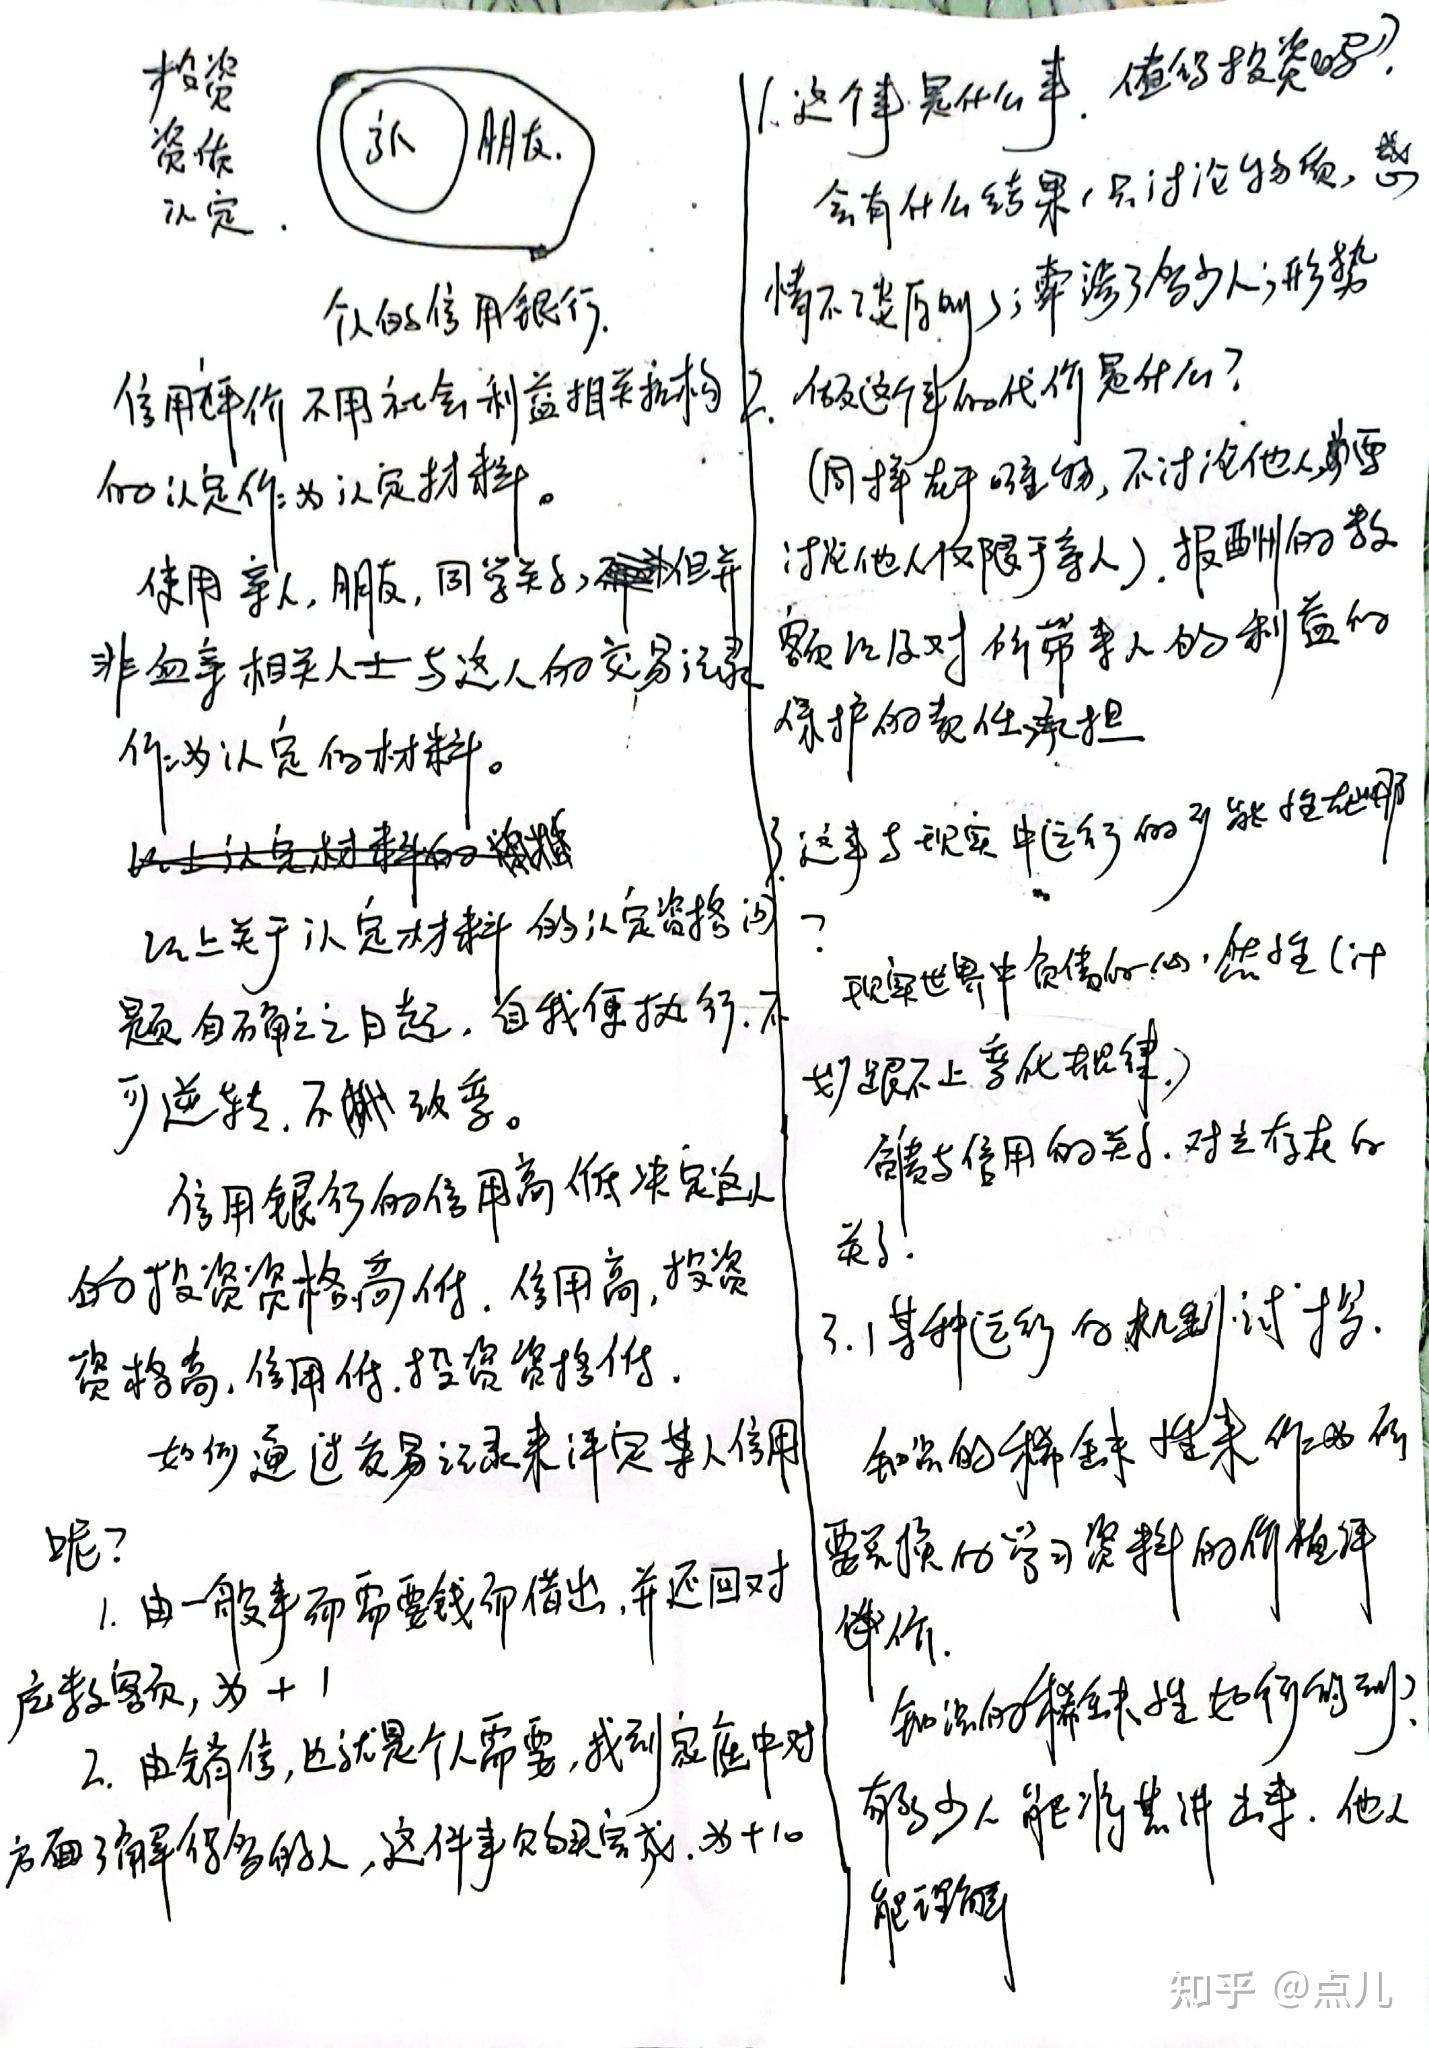 投资
资质
认定.
朋友.
个人的信用银行.
信用评价不用社会利益相关机构
的认定作为认定材料。
使用亲人,朋友,同学关系,但并
非血亲相关人士与这人的交易记录
作为认定的材料。
以上认定材料的
以上关于认定材料的认定资格问
题自确立之日起,自我便执行.不
可逆转.不 改变。
信用银行的信用高低决定这人
的投资资格高低.信用高,投资
资格高,信用低.投资资格低.
如何通过交易记录来评定某人信用
呢?
1.由一般事而需要钱而借出,并还回对
应数额,为+1
2.由 信,也就是个人需要,找到家庭中对
方面了解 的人,这件事 完成.为+10
1.这个事是什么事.值得投资吗?
会有什么结果,只讨论物质、感
情不谈 ;牵涉了多少人;形势
2.做这个事的代价是什么?
(同样在于唯物,不讨论他人,要
讨论他人仅限于亲人).报酬的数
额以及对所带来人的利益的
保护的责任承担
3.这事与现实中运行的可能性在哪
?
现实世界中负债的必然性(计
划跟不上变化规律)
与信用的关系.对立存在的
关系.
3.1某种运行的机制讨 .
知识的稀缺性来作为所
要兑换的学习资料的价值评
价.
知识的稀缺性如何得到?
有多少人能将其讲出来.他人
能理解
知乎 @点儿